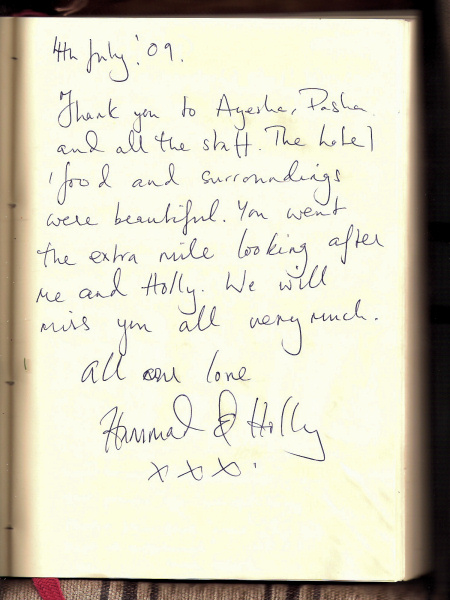 4th July '09.
Thank you to Ayesha, Pasha
and all the staff. The hotel
food and surroundings
were beautiful. You went
the extra mile looking after
me and Holly. We will
miss you all very much.
All our love
Hannah & Holly
x x x.